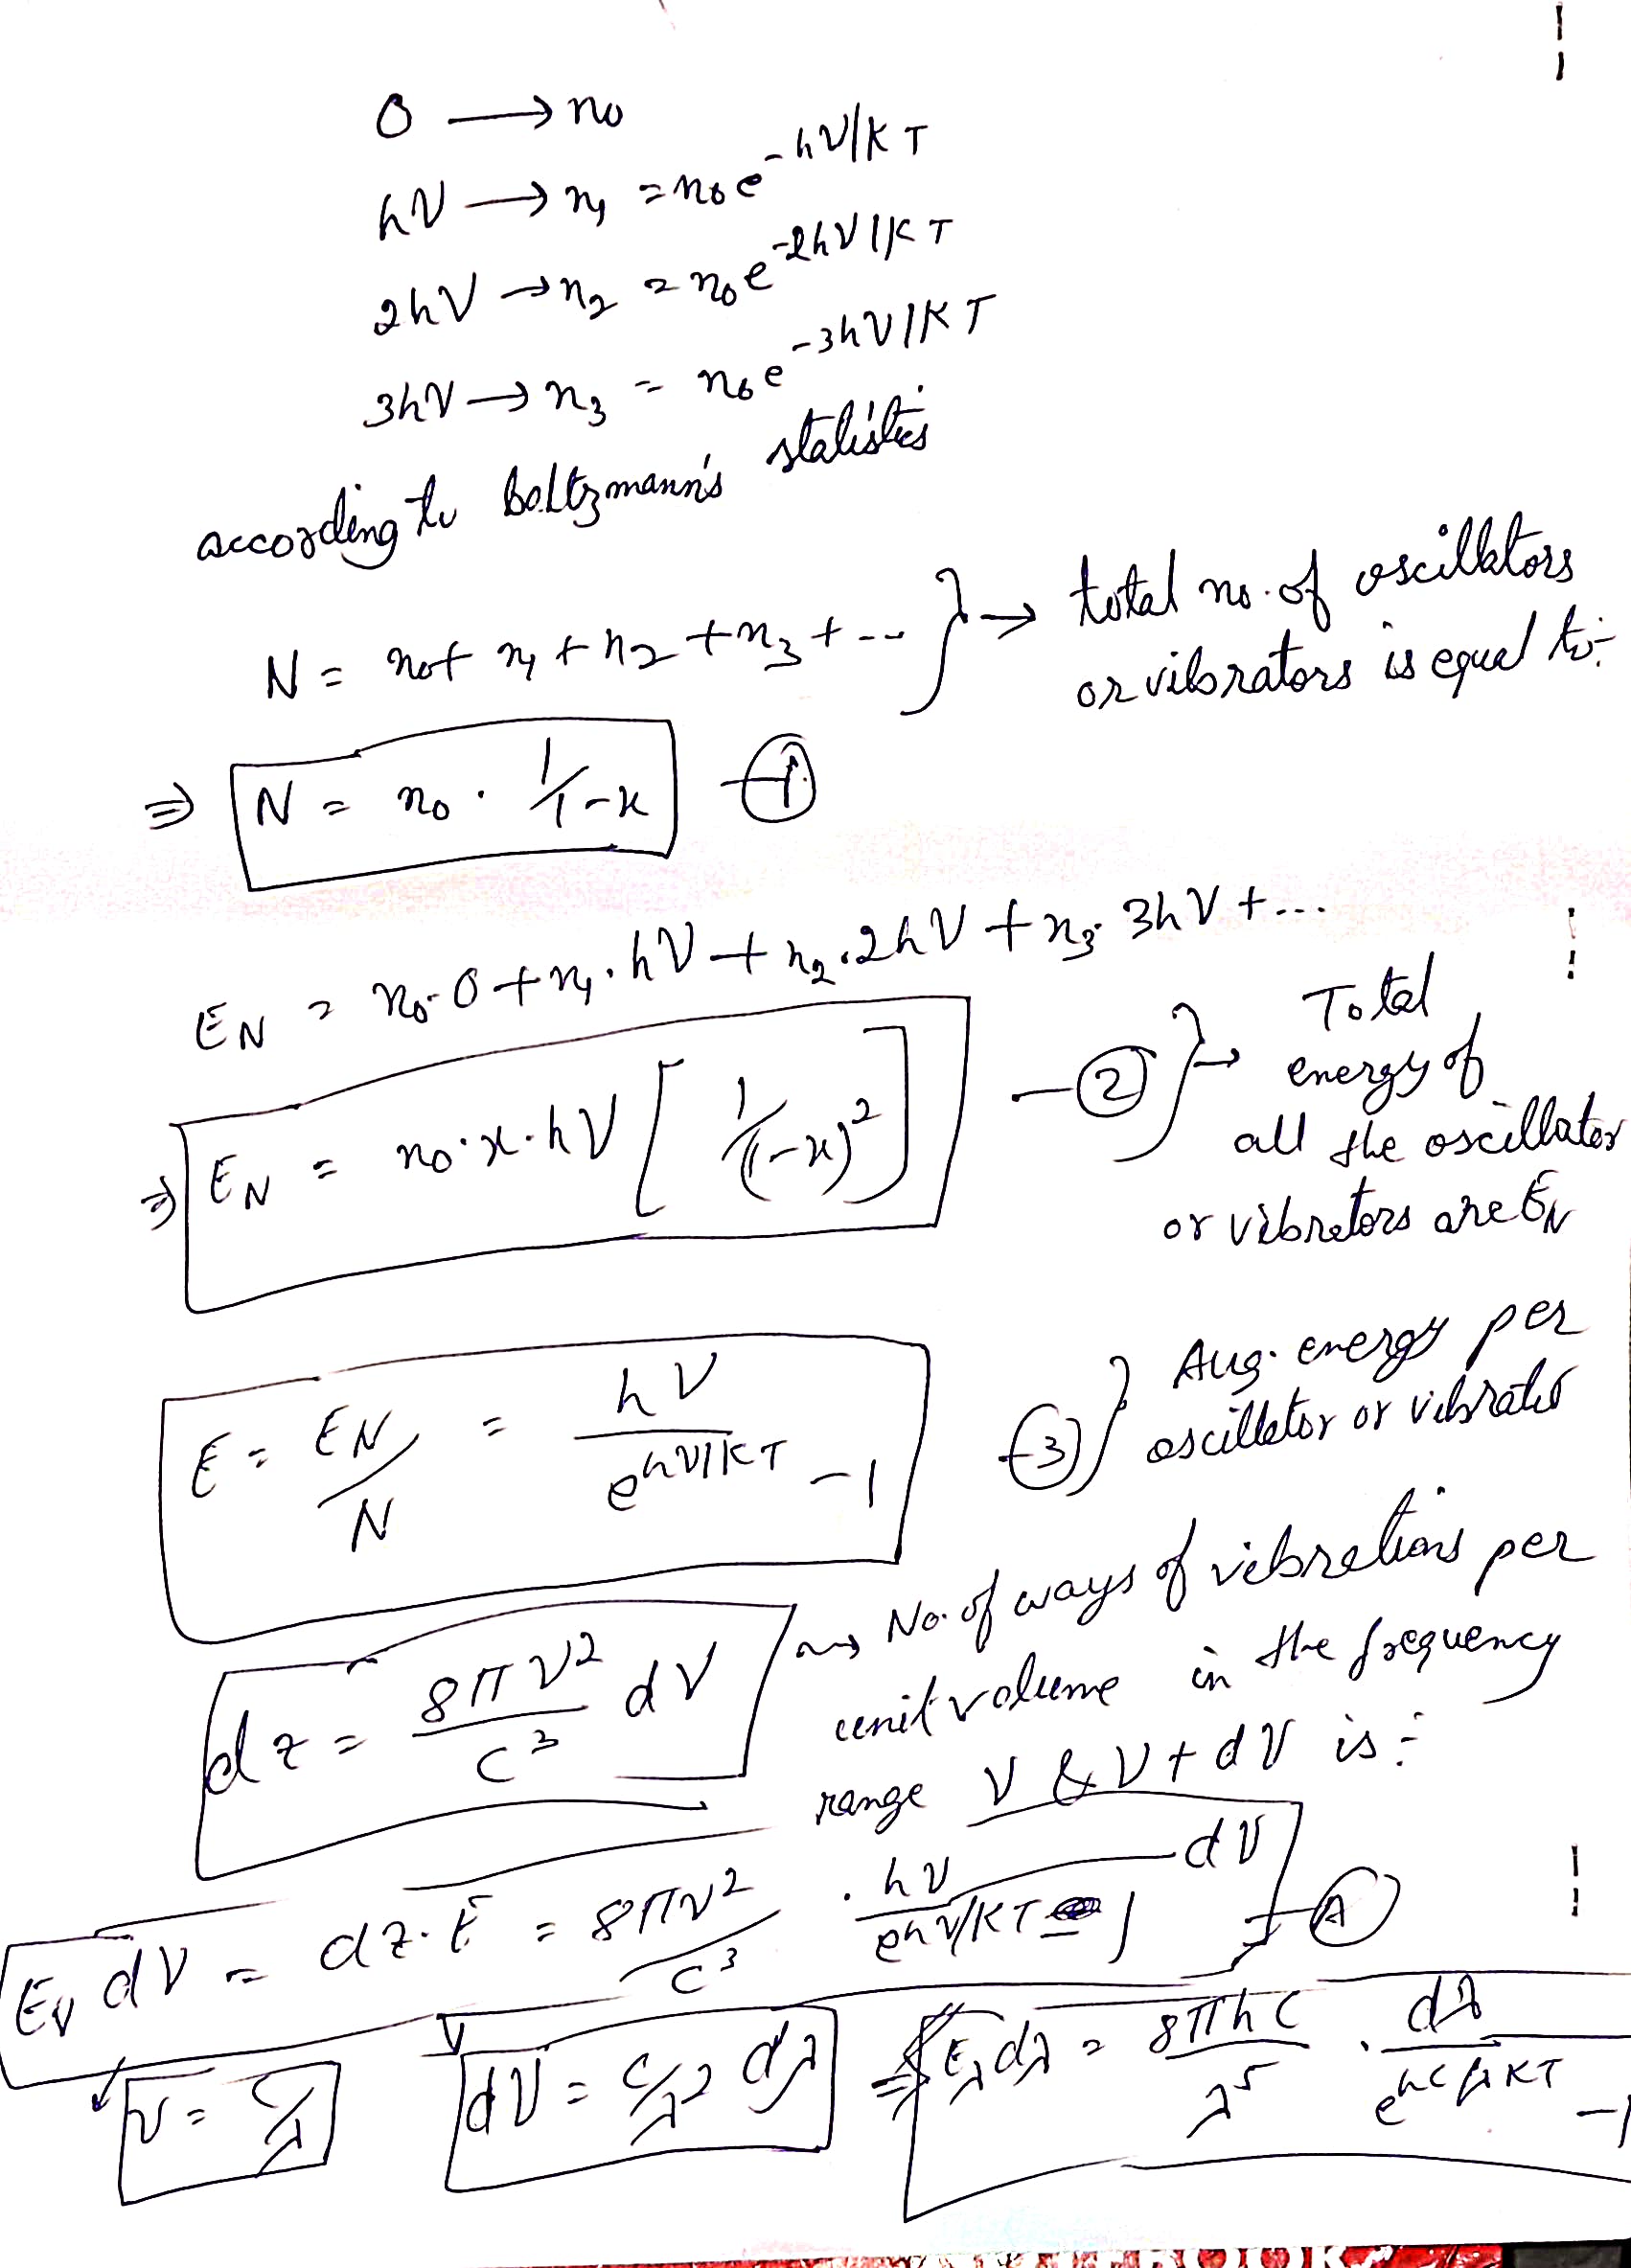 0 → n₀
hν → n₁ = n₀e^-hν/KT
2hν → n₂ = n₀e^-2hν/KT
3hν → n₃ = n₀e^-3hν/KT
according to boltzmann's statistics
N = n₀ + n₁ + n₂ + n₃ + -- } → total no. of oscillators
or vibrators is equal to:-
⇒ N = n₀ · 1/1-x —①
E_N = n₀·0 + n₁·hν + n₂·2hν + n₃·3hν + ...
⇒ E_N = n₀·x·hν [1/(1-x)²] —② } → Total
energy of
all the oscillator
or vibrators are E_N
E = E_N/N = hν/(e^hν/KT -1) —③ } Avg. energy per
oscillator or vibrator
dz = 8πν²/c³ dν → No. of ways of vibrations per
unit volume in the frequency
range ν & ν + dν is :-
E_ν dν = dz·E = 8πν²/c³ · hν/(e^hν/KT - 1) dν —Ⓐ
ν = c/λ dν = c/λ² dλ ⇒ E_λ dλ = 8πhc/λ⁵ · dλ/(e^hc/λKT -1)